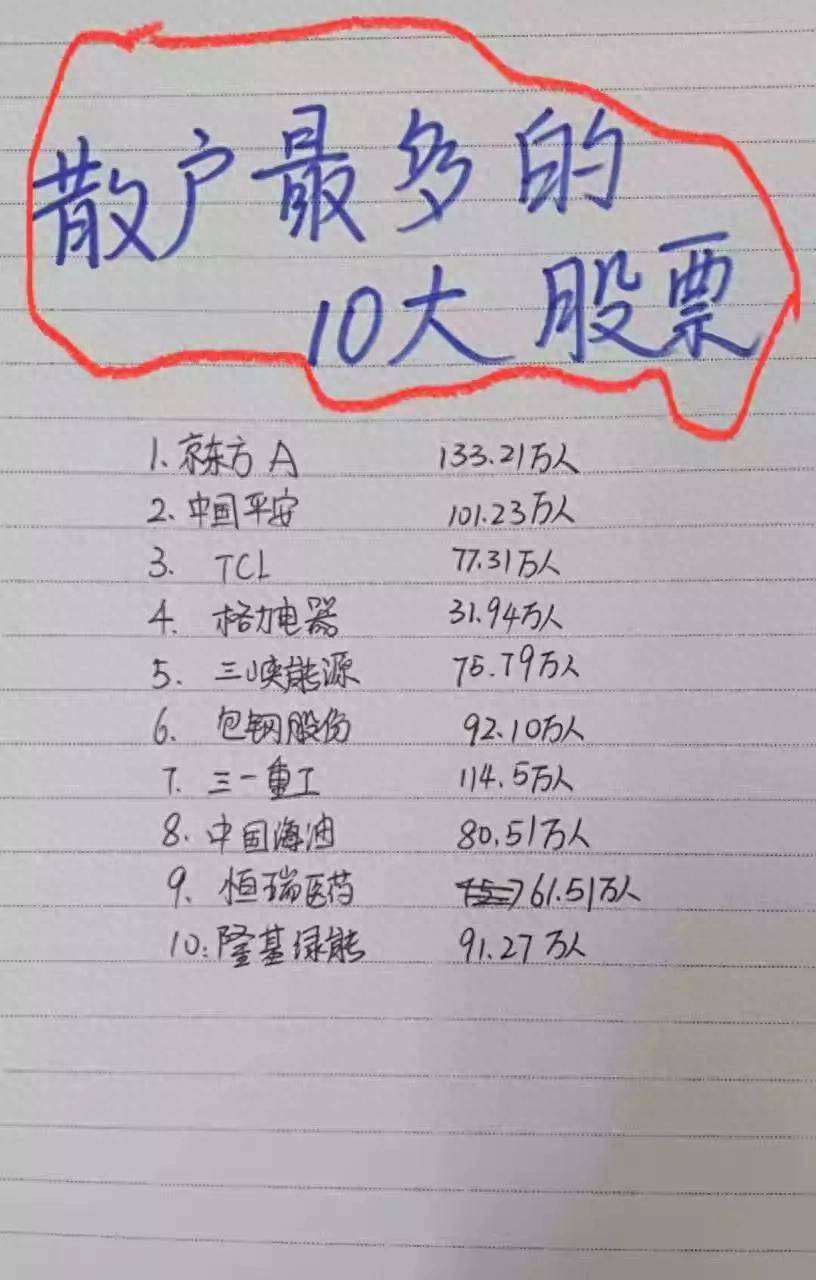 散户最多的
10大股票
1. 京东方A 133.21万人
2. 中国平安 101.23万人
3. TCL 77.31万人
4. 格力电器 31.94万人
5. 三峡能源 75.79万人
6. 包钢股份 92.10万人
7. 三一重工 114.5万人
8. 中国海油 80.51万人
9. 恒瑞医药 61.51万人
10: 隆基绿能 91.27万人